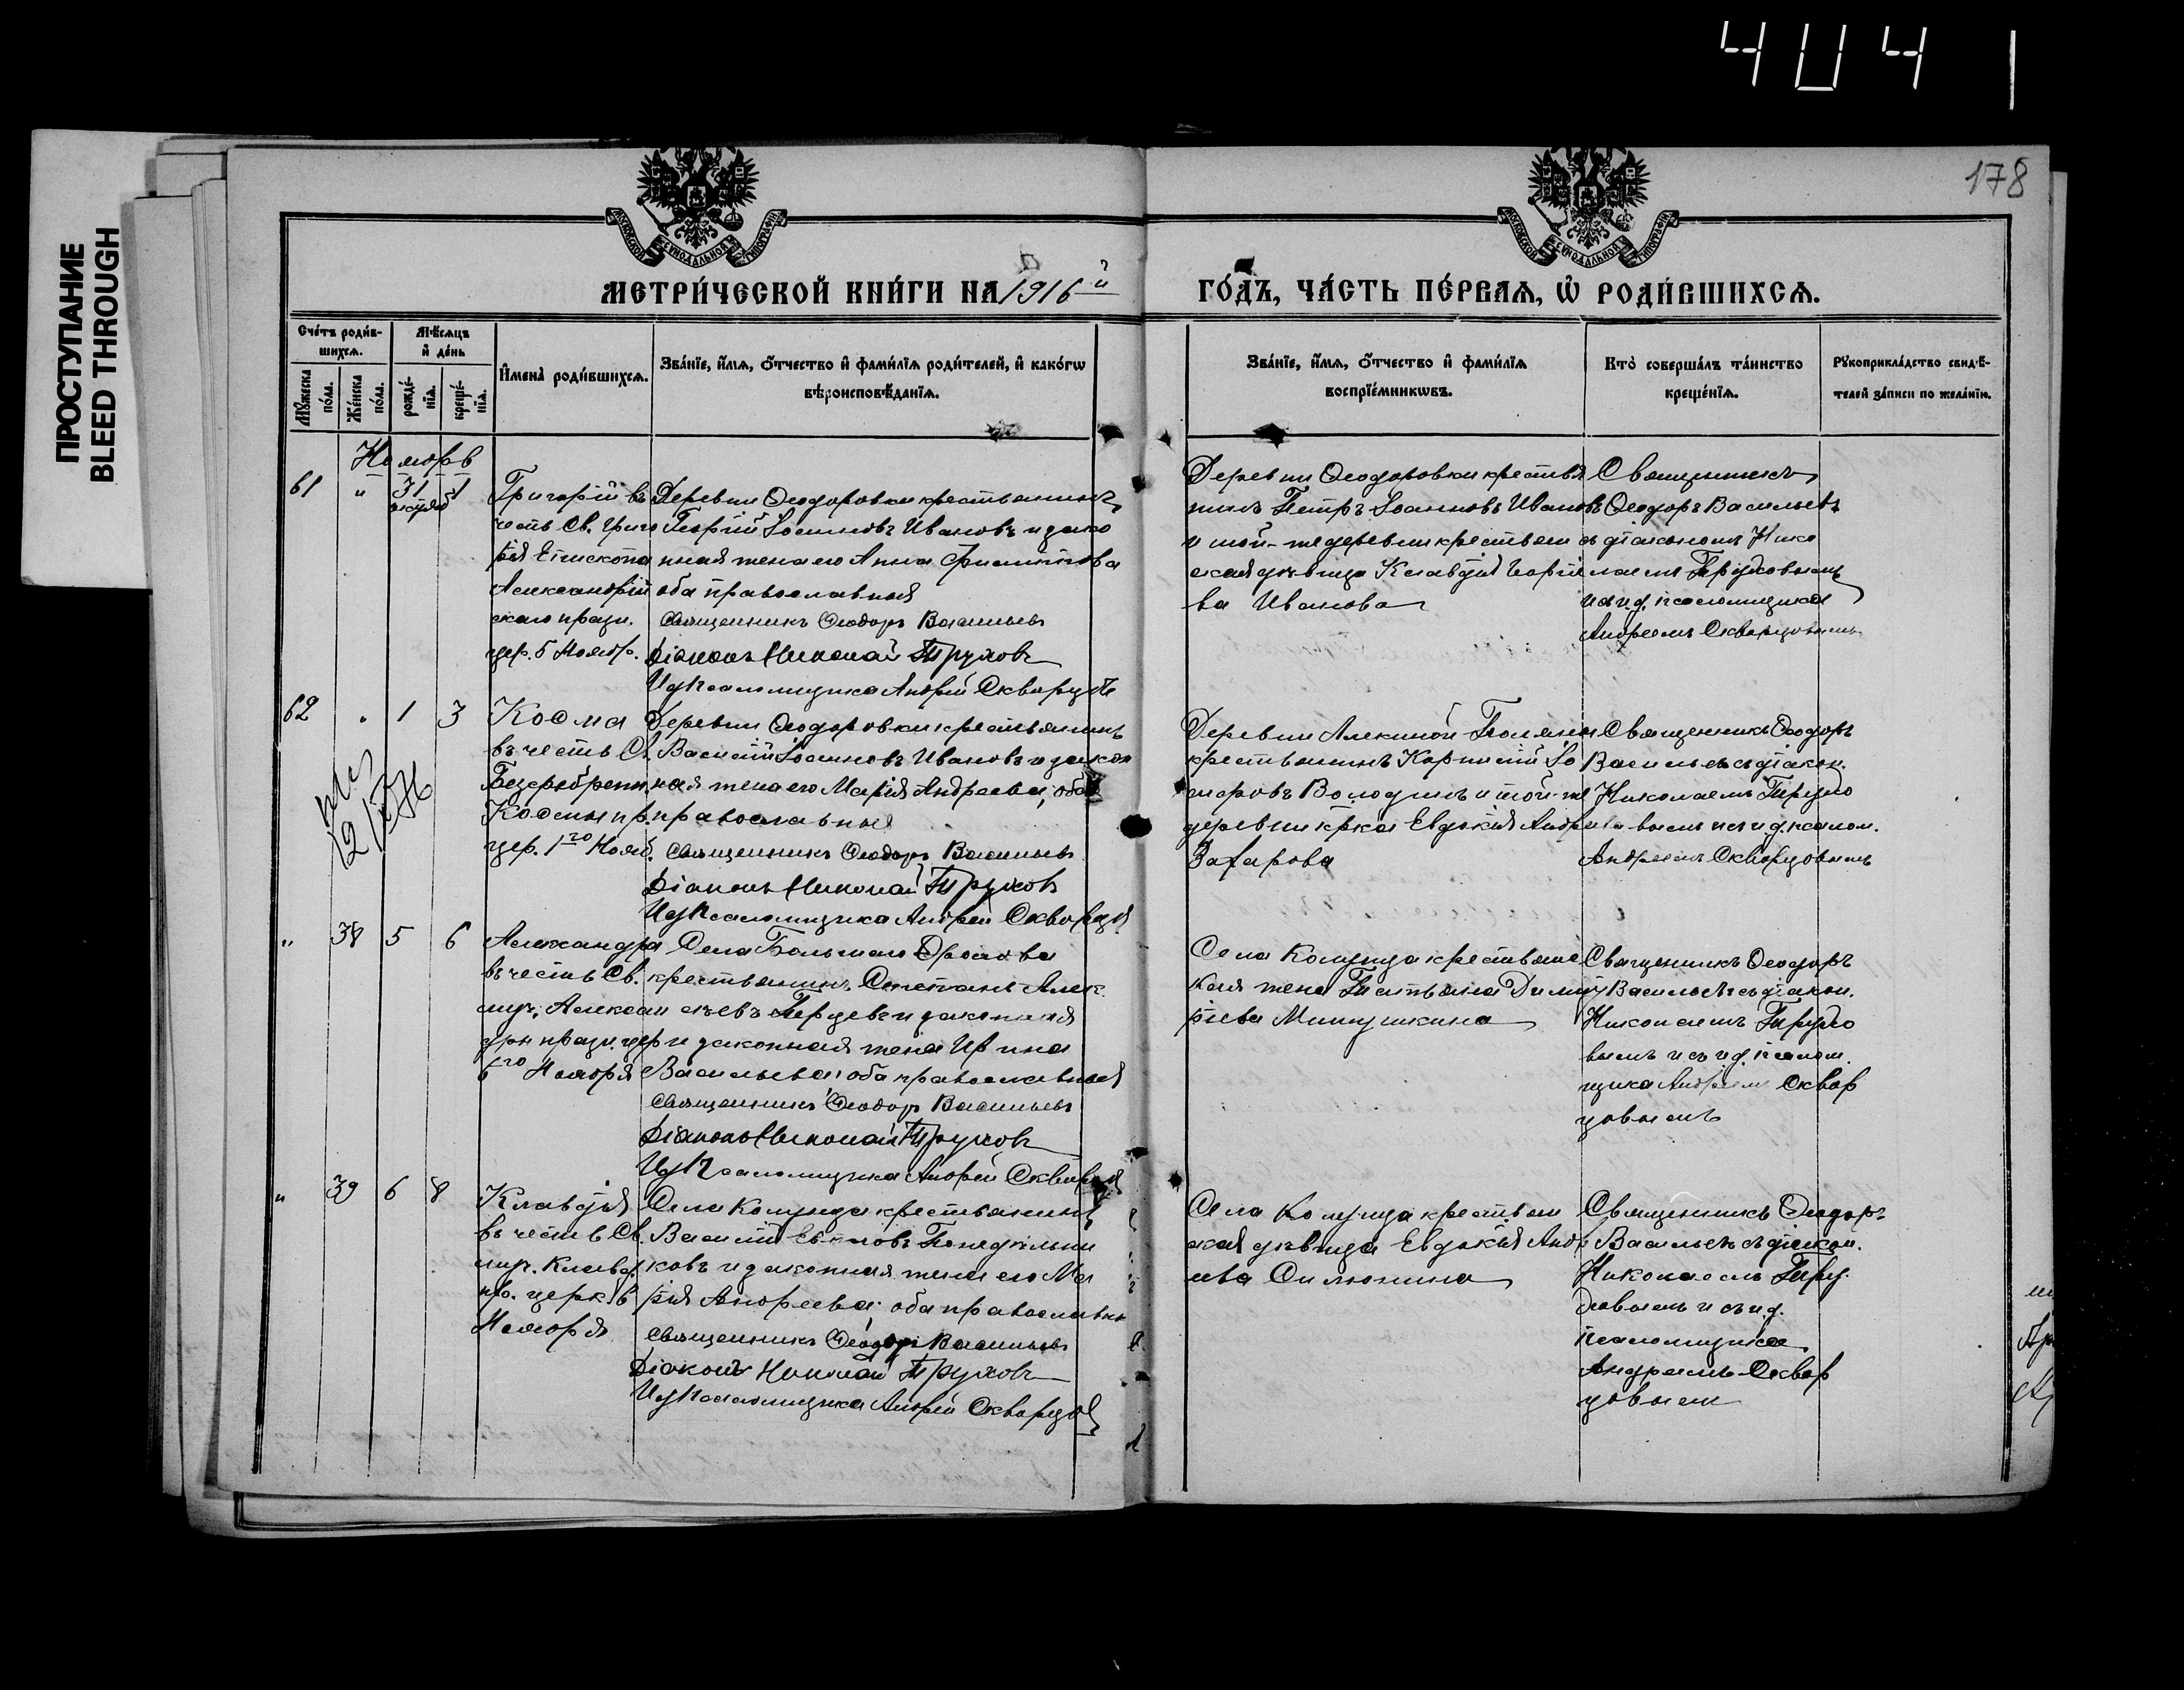 4U4 1
ПРОСТУПАНИЕ
BLEED THROUGH
178
МОСКОВСКОЙ СѴНОДАЛЬНОЙ ТИПОГРАФІИ
МОСКОВСКОЙ СѴНОДАЛЬНОЙ ТИПОГРАФІИ
МЕТРИ́ЧЕСКОЙ КНИ́ГИ НА 1916 й
ГО́ДЪ, ЧА́СТЬ ПЕ́РВАѦ, Ѡ҆ РОДИ́ВШИХСѦ.
Сче́тъ роди́в-
шихсѧ.
Мѣ́сѧцъ
и҆ де́нь
Мꙋ́жеска
по́ла.
Же́нска
по́ла.
рожде́-
нїѧ.
креще́-
нїѧ.
И҆мена̀ роди́вшихсѧ.
Зва́нїе, и҆́мѧ, ѻ҆́тчество и҆ фами́лїѧ роди́телей, и҆ како́гѡ
вѣроисповѣ́данїѧ.
Зва́нїе, и҆́мѧ, ѻ҆́тчество и҆ фами́лїѧ
воспрїе́мникѡвъ.
Кто̀ соверша́лъ та́инство
креще́нїѧ.
Рꙋкоприкла́дство свидѣ́-
телей за́писи по жела́нїю.
Ноябрь
61 " 31 1
октяб
Григорій въ
честь Св. Григо
рія Епископа
Александрій
скаго празн.
цер. 5 Ноябр.
Деревни Ѳеодоровки крестьянинъ
Георгій Іоанновъ Ивановъ и зако
нная жена его Анна Филиппова
оба православныя
Священникъ Ѳеодоръ Васильевъ
Діаконъ Николай Трухов
И д Псаломщика Андрей Скворцов
Деревни Ѳеодоровки крестья
нинъ Петръ Іоанновъ Ивановъ
и той-же деревни крестьян
ская дѣвица Клавдія Георгіе
ва Иванова
Священникъ
Ѳеодоръ Васильевъ
съ діакономъ Нико
лаемъ
и и д. псаломщика
Андреемъ Скворцовымъ
62 " 1 3
Косма
въ честь Св.
Безсребренн.
Космы пр.
цер. 1го Нояб.
Деревни Ѳеодоровки крестьянинъ
Василій Іоанновъ Ивановъ и закон
ная жена его Марія Андреева, оба
православныя
Священникъ Ѳеодоръ Васильевъ
Діаконъ Николай Трухов
И д Псаломщика Андрей Скворцов
Деревни Алкиной Поляны
крестьянинъ
Володинъ и той-же
деревни кр-ка Евдокія Андреева
Захарова
Священникъ Ѳеодоръ
Васильевъ съ діакон.
Николаемъ Трухо
вымъ и и. д. псалом.
Андреемъ Скворцовымъ
" 38 5 6
Александра
въ честь Св.
муч. Алексан
дры празн. цер
6го Ноября
Села Большаго
крестьянинъ Степанъ Алек
сѣевъ и законная
и законная жена Ирина
Васильева оба православныя
Священникъ Ѳеодоръ Васильевъ
Діаконъ Николай Трухов
И д Псаломщика Андрей Скворцов
Села Колунца крестьянс
кая жена Татьяна Димит
ріева Минушкина
Священникъ Ѳеодоръ
Васильевъ съ діакон.
Николаемъ Трухо
вымъ и и д. псалом
щика Андреем Сквор
цовымъ
" 39 6 8
Клавдія
въ честь Св.
муч. Клавд.
пр. церк. 6
Ноября
Села Колунца крестьянинъ
Василій Понедѣльни
ковъ и законная жена его Ма
рія Андреева оба православны
Священникъ Ѳеодоръ Васильевъ
Діаконъ Николай Трухов
И д Псаломщика Андрей Скворцов
Села Колунца крестьян
ская дѣвица Евдокія Андре
ева Силюнина
Священникъ Ѳеодоръ
Васильевъ съ діакон.
Николаемъ Тру
ховымъ и и д.
псаломщика
Андреемъ Сквор
цовым